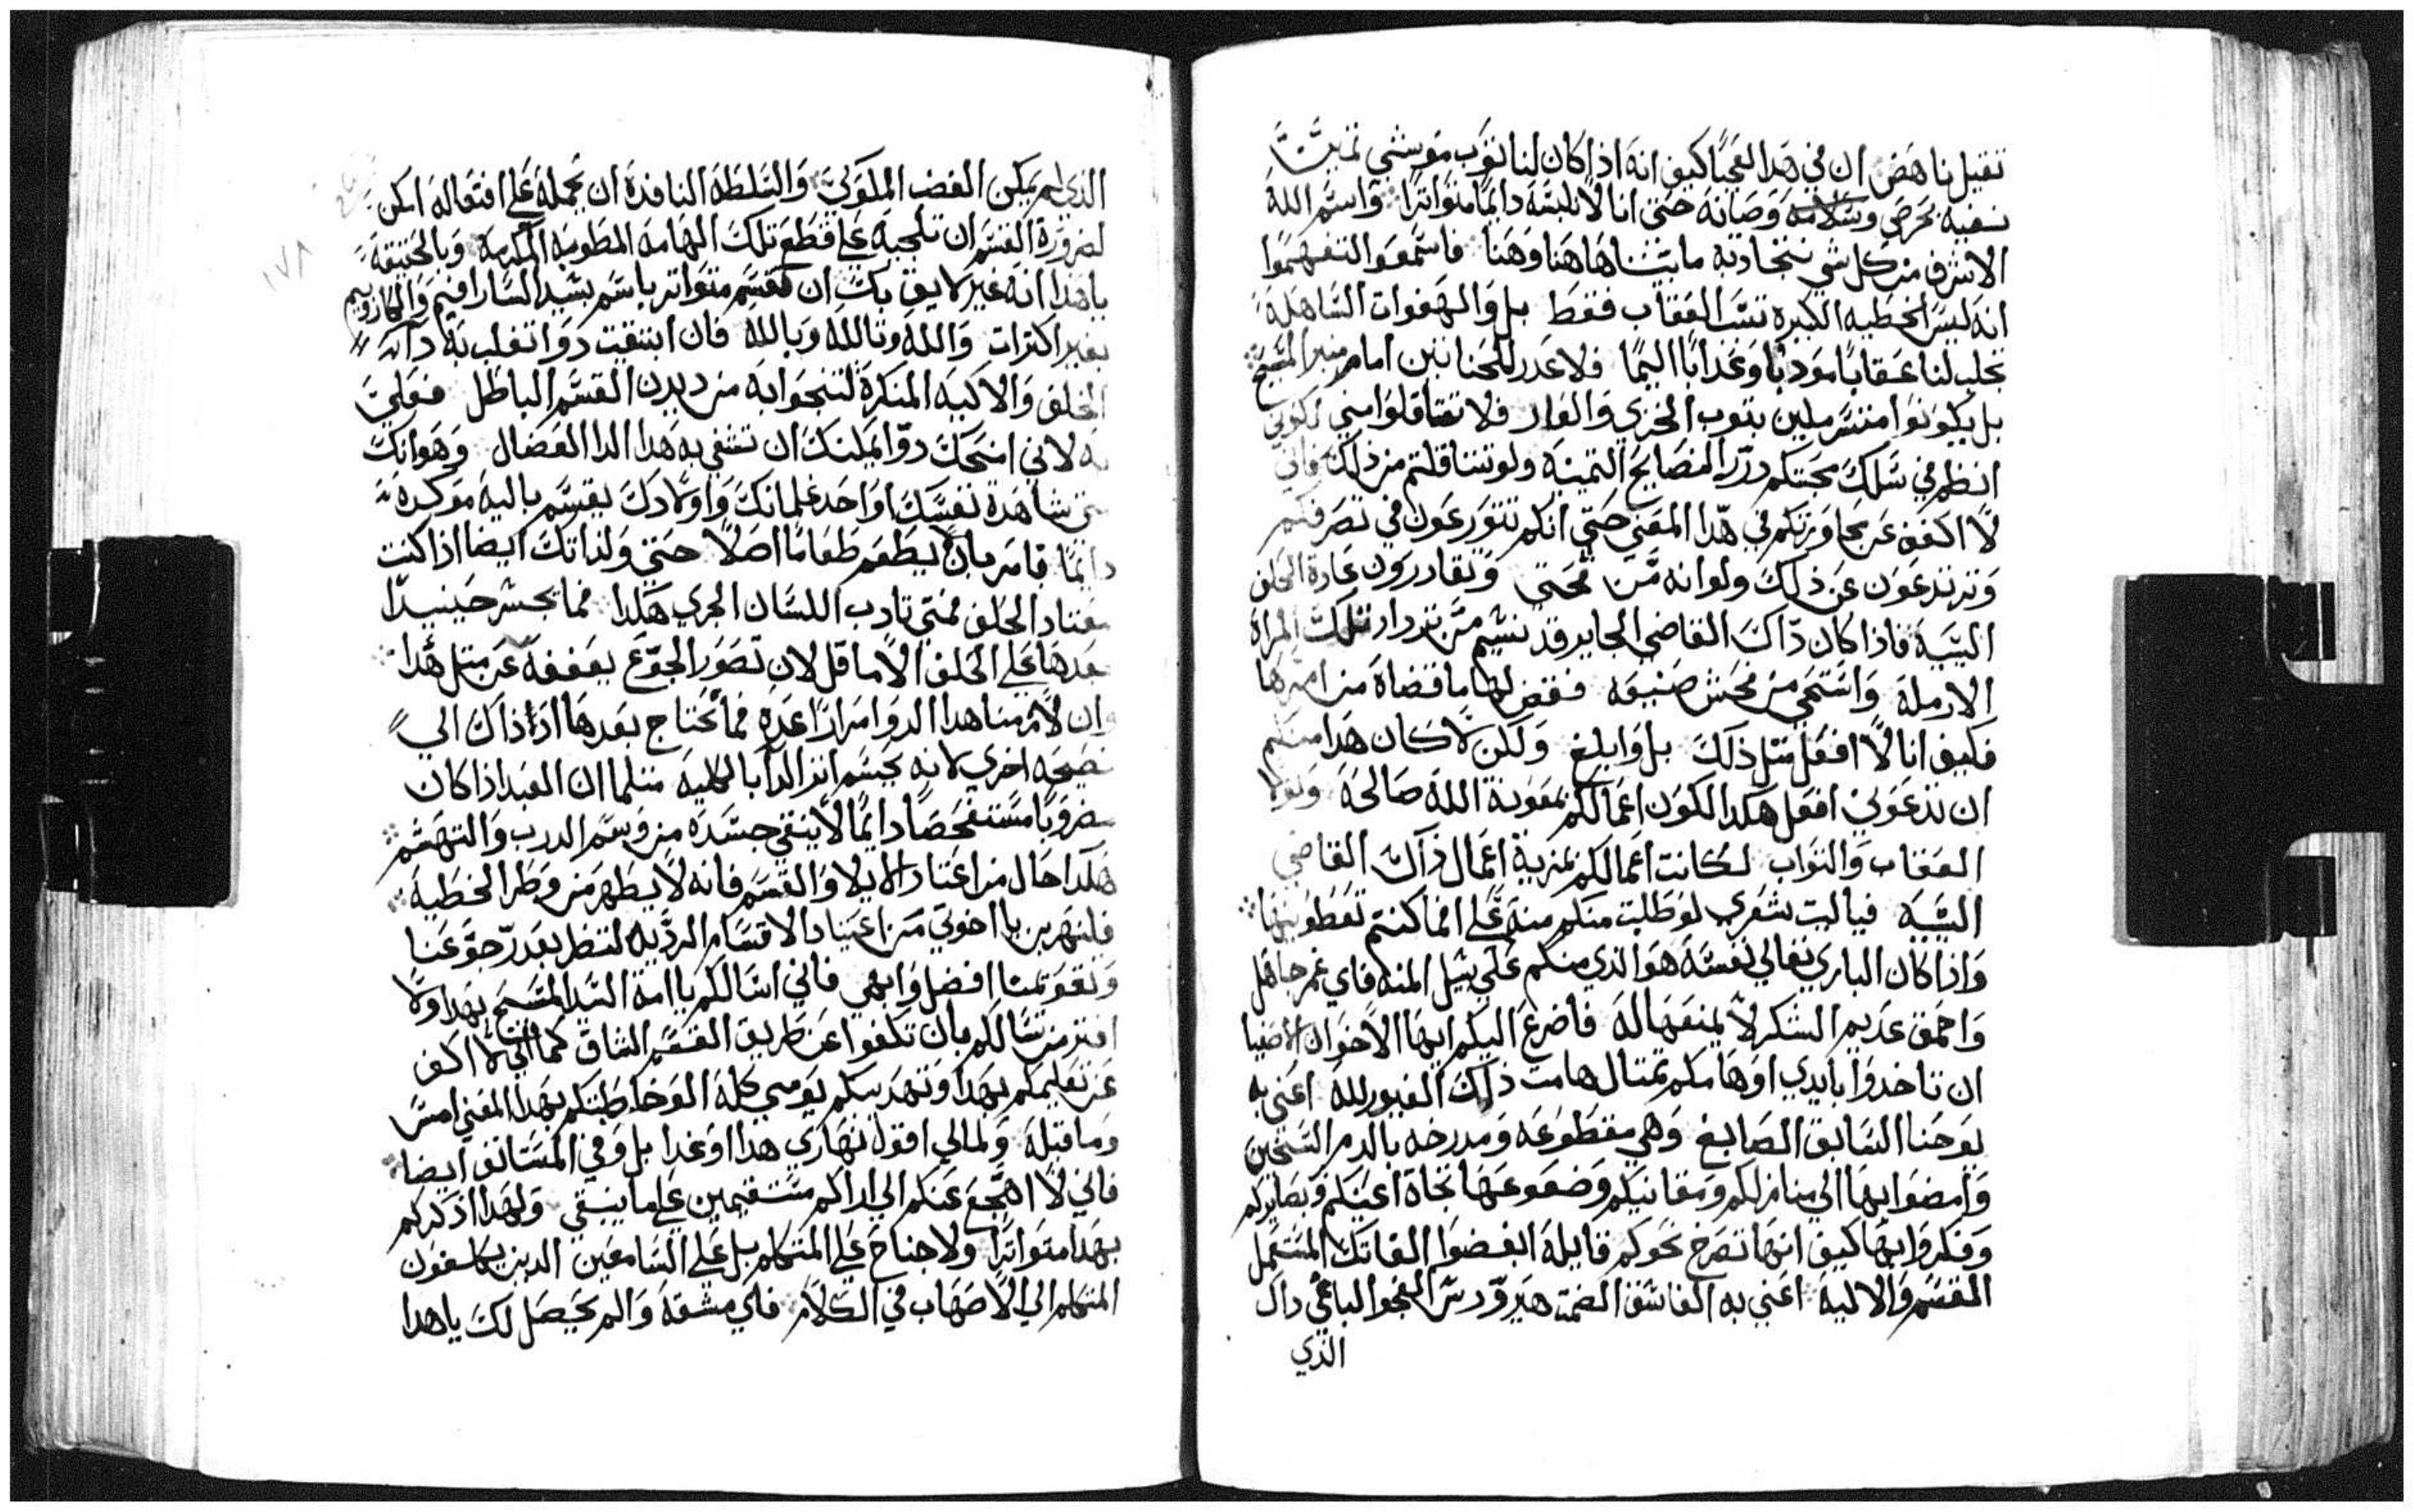 تقيل نا هض ان في هدا لعجبًا كيف انه اذا كان لنا توب موشي تمين
نسعيه بحرص وسلامه وصيانه حتي اننا لا نلبسه دايمًا متواترًا واسم الله
الاشرف من كل شي نتجادبه ما بيننا هاهنا وهنا فاسمعوا لتفهموا
انه ليس الخطيه الكبيره تسبب العقاب فقط بل والهفوات الساهله
تجلب لنا عقابًا مودبا وعدابًا اليمًا فلا عدر للحناتين امام منبر المسيح
بل يكونوا متسرملين بتوب الخزي والعار فلا تتتاقلوا مني لكوني
انظم في سلك محبتكم درر النصايح التمينه ولو تتتاقلتم من ذلك فاني
لا اكفف عن مجاورتكم في هدا المعني حتي انكم تتورعون في تصرفكم
وترتدعون عن ذلك ولو انه من محبتي وتغادرون عادة الحلف
السيه فاذا كان داك القاضي الجاير قد سيم من تزدار تلك المراة
الارمله واستحي من فحش صنيعه فقضي لها ما قضاه من امرها
فكيف انا لا افعل متل ذلك بل وابلغ ولكن لا كان هدا منكم
ان تدعوني افعل هكدا لكون اعمالكم بمعونة الله صالحه ولولا
العقاب والتواب لكانت اعمالكم بمزية اعمال داك القاضي
السيه فيا ليت شعري لو طلبت منكم منه علي انما كنتم تعطونيها
واذا كان الباري تعالي نفسه هو الدي منكم علي سبيل المنه فاي غمر جاهل
واحمق عديم الشكر لا يمنعها له فاضرع اليكم ايها الاخوان الاصفيا
ان تاخدوا بايدي اوهامكم تمتال هامت ذلك الغيور لله اعني به
يوحنا السابق الصابغ وهي مقطوعه ومدرجه بالدم السخين
وامضوا بها الي منازلكم ومقانيكم وضعوعها تجاة اعينكم وبصايركم
وفكروا بها كيف انها تصرخ نحوكم قايله ابغضوا القاتك المستعمل
القسم والاليه اعني به الفاسق الضمت هيرودس الفجو الباغي داك
الذي
الذي لم يمكن الغضب الملوكي والسلطه النافده ان يحمله علي افتعاله امكن
لضرورة القسم ان تلجيه علي قطع تلك الهامه المطوبه المكرمه وبالحقيقه
ياهدا انه غير لايق بك ان تقسم متواتر باسم سيد السارافيم والكاروبيم
بغير اكترات والله وتالله وبالله فان ابتغيت دوا تغلب به داا
الحلف والاكيه المنكره لتنجوا به من ديدن القسم الباطل فعلي
به لاني امنحك دوا يمكنك ان تشفي به هدا الدا العضال وهو انك
متي شاهدة نفسك او احد غلمانك واولادك يقسم باليه موكده
دايمًا فامر بان لا يطعم طعامًا اصلا حتي ولذاتك ايضا اذا كنت
معتاد الحلف فمتي تادب اللسان الجري هكدا فما يجسر حينيدا
بعدها علي الحلف الا ما قل لان تصور الجوع يعففه عن متل هدا
وان لازمنا هدا الدوا مرارًا عده فما نحتاج بعدها اذ ذاك الي
نصيحه اخري لانه يحسم اتر الدا بالكليه متلما ان العبد اذا كان
مضروبًا مستفحصًا دايمًا لا ينقي جسده من وسم الدرب والتهشم
هكدا حال من اعتاد الايلا والقسم فانه لا يطهر من وطر الخطيه
فلنهربن يا اخوتي من اعتياد الاقسام الرديه لتنظر بعد رجوعنا
وتقومنا افضل وابهي فاني اسالكم يا امة السيد المسيح بهدا ولا
افتر من سالكم بان تكفوا عن طريق القسم الشاق كما اني لا اكف
عن تعليمكم بهدا وتهديبكم يومي كله الوخاطبتكم بهدا المعني امس
وما قبله ولمالي اقول نهاري هدا او غدا بل وفي المستانف ايضا
فاني لا اهجع عنكم الي ان اراكم مستقيمين علي ما ينبغي ولهدا اذكركم
بهدا متواترًا ولا جناح علي المتكلم بل علي السامعين الدين يكلفون
المتكلم الي الاصهاب في الكلام فاي مشقه والم يحصل لك ياهدا
١٧٨